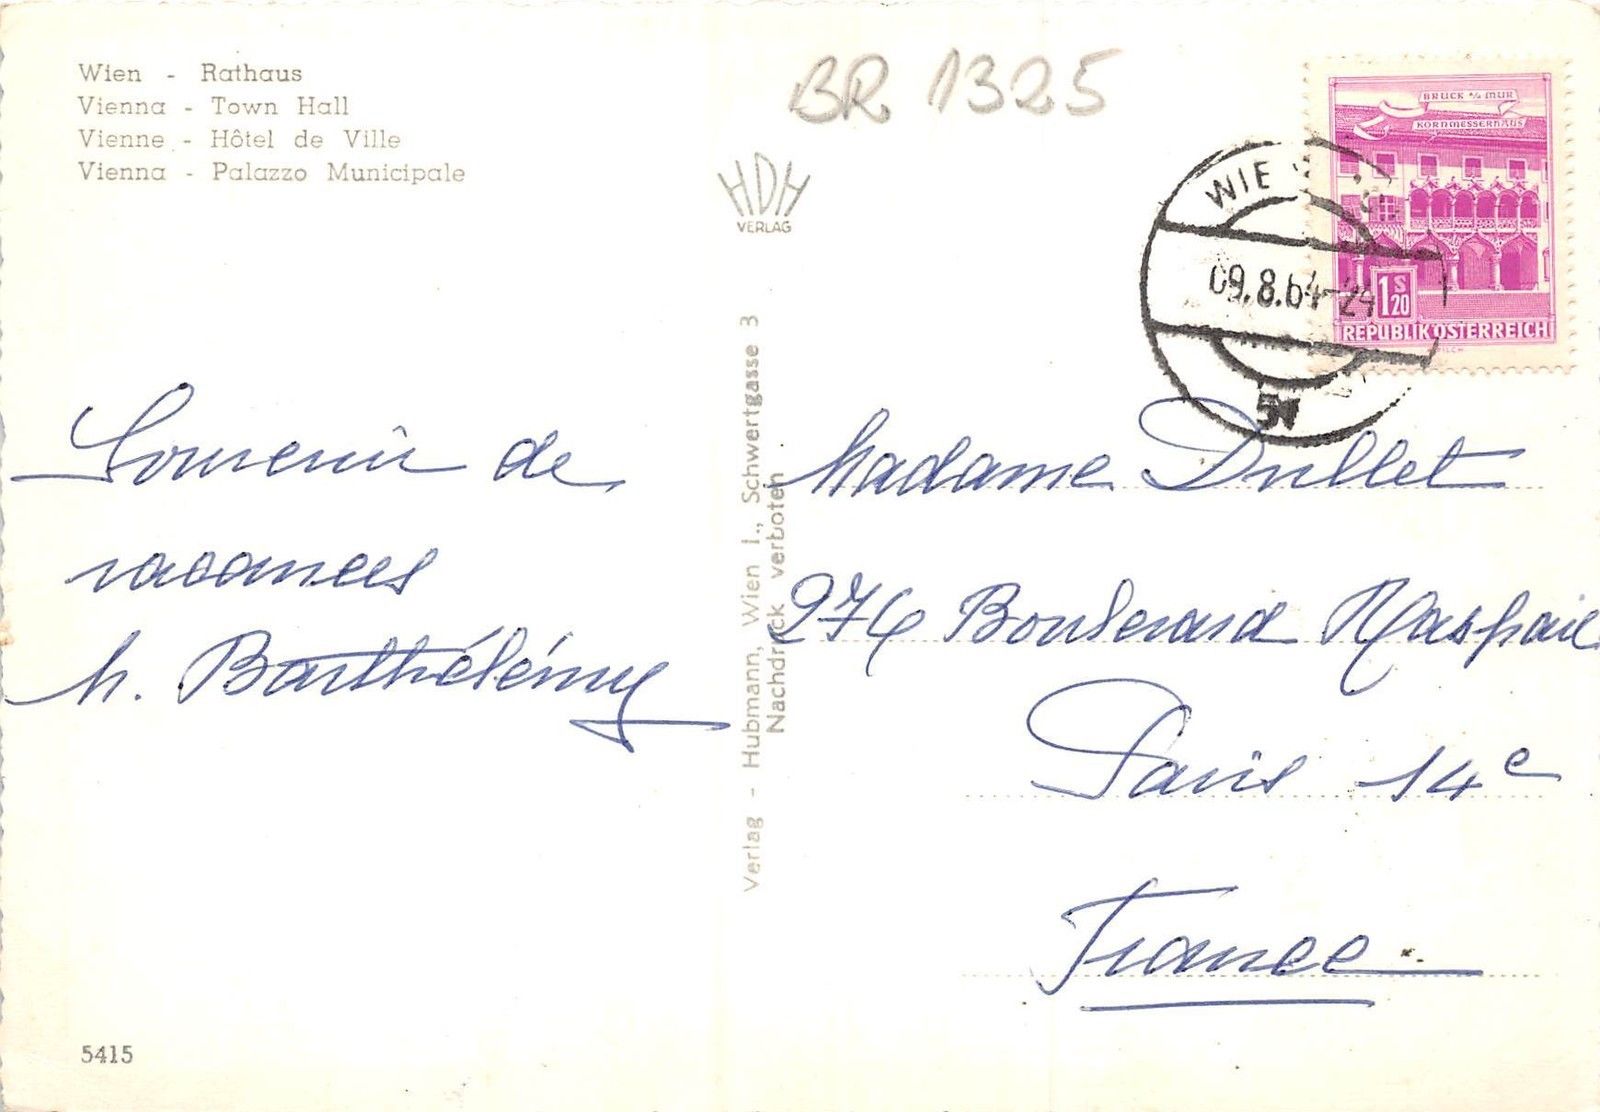 Wien - Rathaus
Vienna - Town Hall
Vienne - Hôtel de Ville
Vienna - Palazzo Municipale
BR 1325
HDH
VERLAG
BRUCK a/d MUR
KORNMESSERHAUS
1 S 20
REPUBLIK ÖSTERREICH
WIE
09.8.64-24
Souvenir de
vacances
M. Barthélémy
Verlag - Hubmann, Wien I., Schwertgasse 3
Nachdruck verboten
Madame Dullet
276 Boulevard Raspail
Paris 14e
France
5415